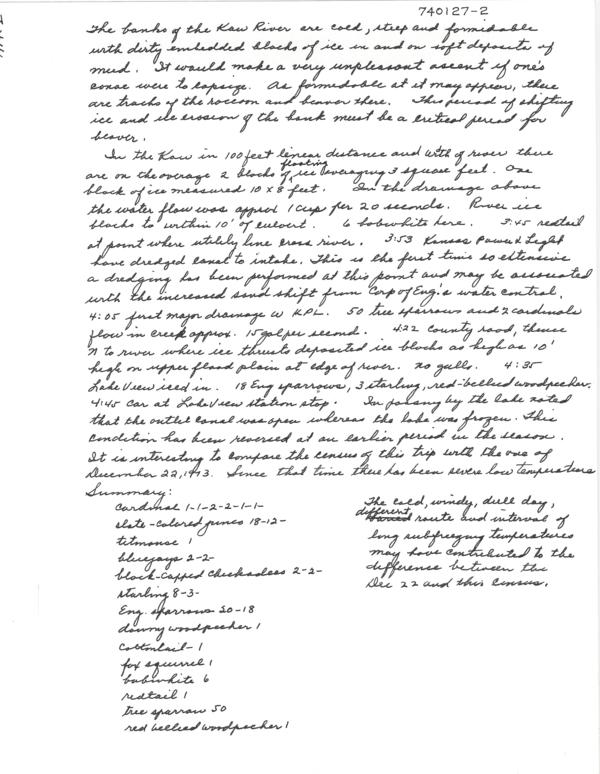 740127-2
The banks of the Kaw River are cold, steep and formidable
with dirty embedded blocks of ice in and on soft deposits of
mud. It would make a very unpleasant ascent if one's
canoe were to capsize. As formidable at it may appear, there
are tracks of the raccoon and beaver there. This period of shifting
ice and ice erosion of the bank must be a critical period for
beaver.
In the Kaw in 100 feet linear distance and width of river there
are on the average 2 blocks of floating ice averaging 3 square feet. One
block of ice measured 10 x 8 feet. In the drainage above
the water flow was approx 1 cup per 20 seconds. River ice
blocks to within 10' of culvert. 6 bobwhite here. 3:45 redtail
at point where utility line cross river. 3:53 Kansas Power & Light
have dredged canal to intake. This is the first time so extensive
a dredging has been performed at this point and may be associated
with the increased sand shift from Corp of Eng's water control.
4:05 first major drainage W KPL. 50 tree sparrows and 2 cardinals
flow in creek approx. 15 gal per second. 4:22 County road, thence
N to river where ice thrusts deposited ice blocks as high as 10'
high on upper flood plain at edge of river. no gulls. 4:35
Lake View iced in. 18 Eng sparrows, 3 starling, red-bellied woodpecker.
4:45 Car at Lake View station stop. In passing by the lake noted
that the outlet canal was open whereas the lake was frozen. This
condition has been reversed at an earlier period in the season.
It is interesting to compare the census of this trip with the one of
December 22, 1973. Since that time there has been severe low temperatures
Summary:
Cardinal 1-1-2-2-1-1-
slate-colored juncos 18-12-
titmouse 1
bluejays 2-2-
black-capped chickadees 2-2-
starling 8-3-
Eng. sparrows 20-18
downy woodpecker 1
Cottontail- 1
fox squirrel 1
bobwhite 6
redtail 1
tree sparrow 50
red bellied woodpecker 1
The cold, windy, dull day,
different route and interval of
long subfreezing temperatures
may have contributed to the
difference between the
Dec 22 and this census.